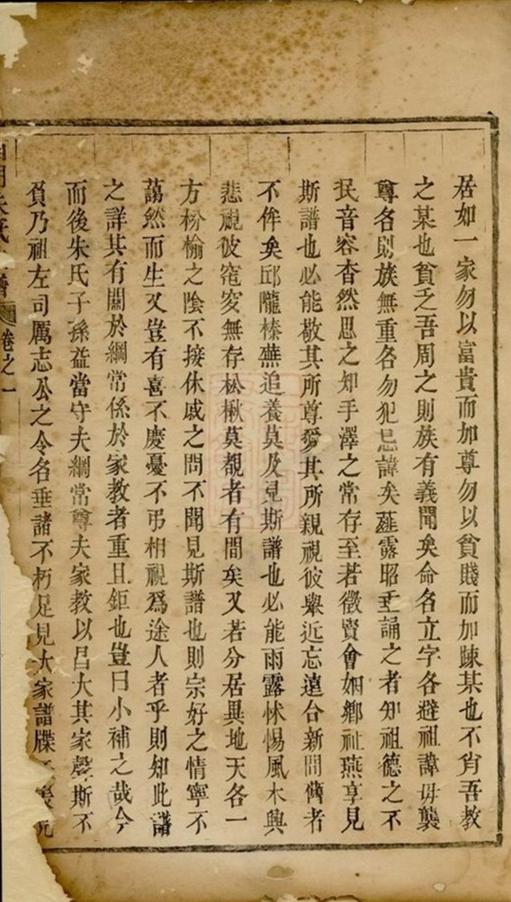 居如一家勿以富貴而加尊勿以貧賤而加踈某也不肖吾教
之某也貧乏吾周之則族有義聞矣命名立字各避祖諱毋襲
尊名則族無重各勿犯忌諱矣薤露昭垂誦之者知祖德之不
民音容杳然思之知手澤之常存至若徵賢會姻鄉祉燕享見
斯譜也必能敬其所尊愛其所親視彼舉近忘遠合新間舊者
不侔矣邱隴榛蕪追養莫及見斯譜也必能雨露怵惕風木興
悲視彼窀穸無存松楸莫覩者有間矣又若分居異地天各一
方枌榆之陰不接休戚之問不聞見斯譜也則宗好之情寧不
藹然而生又豈有喜不慶憂不弔相視爲途人者乎則知此譜
之詳其有關於綱常係於家教者重且鉅也豈曰小補之哉今
而後朱氏子孫益當守夫綱常尊夫家教以昌大其家聲斯不
負乃祖左司厲志公之令名垂諸不朽足見大家譜牒
朱氏 譜 卷之一